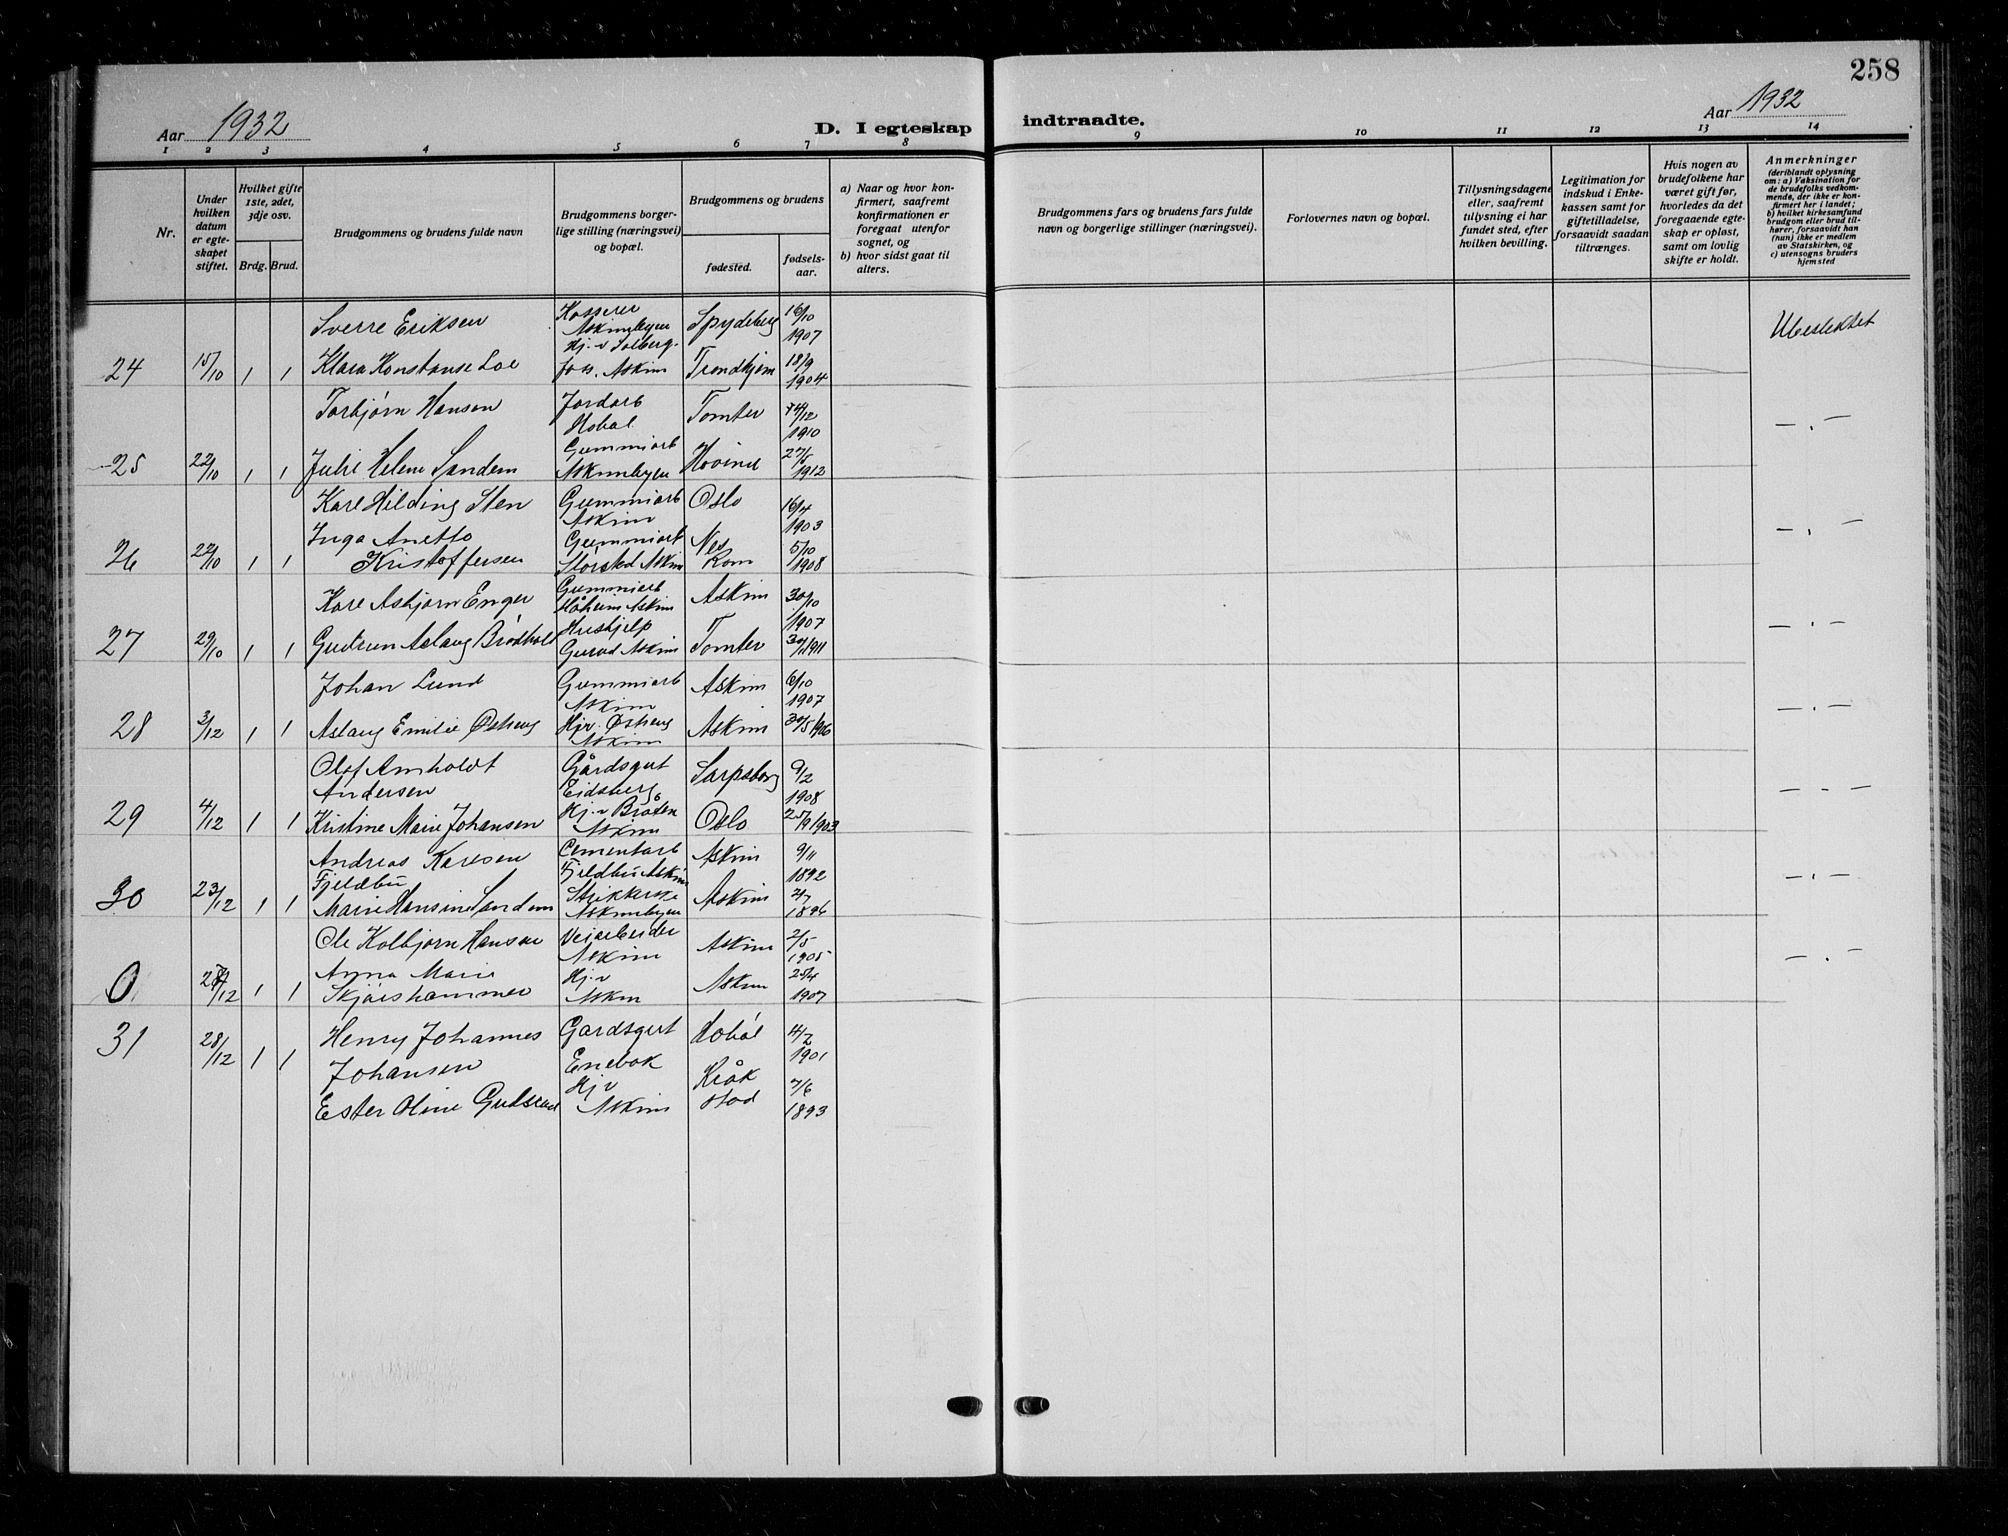 258
Aar 1932
D. I egteskap indtraadte.
Aar 1932
1 2 3 4 5 6 7 8 9 10 11 12 13 14
Nr.
Under hvilken datum er egteskapet stiftet.
Hvilket gifte 1ste, 2det, 3dje osv.
Brdg. Brud.
Brudgommens og brudens fulde navn
Brudgommens borgerlige stilling (næringsvei) og bopæl.
Brudgommens og brudens
fødested.
fødselsaar.
a) Naar og hvor konfirmert, saafremt konfirmationen er foregaat utenfor sognet, og
b) hvor sidst gaat til alters.
Brudgommens fars og brudens fars fulde navn og borgerlige stillinger (næringsvei).
Forlovernes navn og bopæl.
Tillysningsdagene eller, saafremt tillysning ei har fundet sted, efter hvilken bevilling.
Legitimation for indskud i Enkekassen samt for giftetilladelse, forsaavidt saadan tiltrænges.
Hvis nogen av brudefolkene har været gift før, hvorledes da det foregaaende egteskap er opløst, samt om lovlig skifte er holdt.
Anmerkninger
(deriblandt oplysning om: a) Vaksination for de brudefolks vedkommende, der ikke er konfirmert her i landet; b) hvilket kirkesamfund brudgom eller brud tilhører, forsaavidt han (hun) ikke er medlem av Statskirken, og c) utensogns bruders hjemsted
Sverre Eriksen Kasserer Askimbyen Spydeberg 16/10 1907
24 15/10 1 1 Klara Konstanse Loe Hj. v Solberg. Askim Trondhjem 18/9 1904
Torbjørn Hansen Jordarb Hobøl Tomter 24/12 1910 — . —
25 22/10 1 1 Julie Helene Sandem Gummiarb Askimbyen 27/5 1912
Kare Hilding Sten Gummiarb Askim Oslo 16/4 1903 — . —
26 22/10 1 1 Inga Anette Kristoffersen Gummiarb Askim Nes Rom 5/10 1908
Kare Asbjørn Enger Gummiarb Askim Askim 30/10 1907 — . —
27 29/10 1 1 Gudrun Aslaug Hushjelp Askim Tomter 1911
Johan Lund Gummiarb Askim Askim 6/10 1907 — . —
28 3/12 1 1 Aslaug Emilie Østeng Hjv. Østeng Askim Askim 30/5 1906
Olof Arnholdt Andersen Gårdsgut Eidsberg Sarpsborg 9/2 1908 — . —
29 4/12 1 1 Kristine Marie Johansen Hj. v Bråten Askim Oslo 25/9 1903
Andreas Karlsen Fjeldbu Cementarb Fjeldbu Askim Askim 9/11 1892 — . —
30 23/12 1 1 Marie Hansine Sandem Strikkerske Askimbyen Askim 1896
Ole Kolbjørn Hansen Veiarbeider Askim Askim 2/5 1905 — . —
0 1 1 Anna Marie Skjørshammer Hj. v Askim Askim 25/4 1907
31 28/12 1 1 Henry Johannes Johansen Gardsgut Enebak Hobøl 4/2 1901
Ester Oline Hj v Askim Kråkstad 7/6 1893